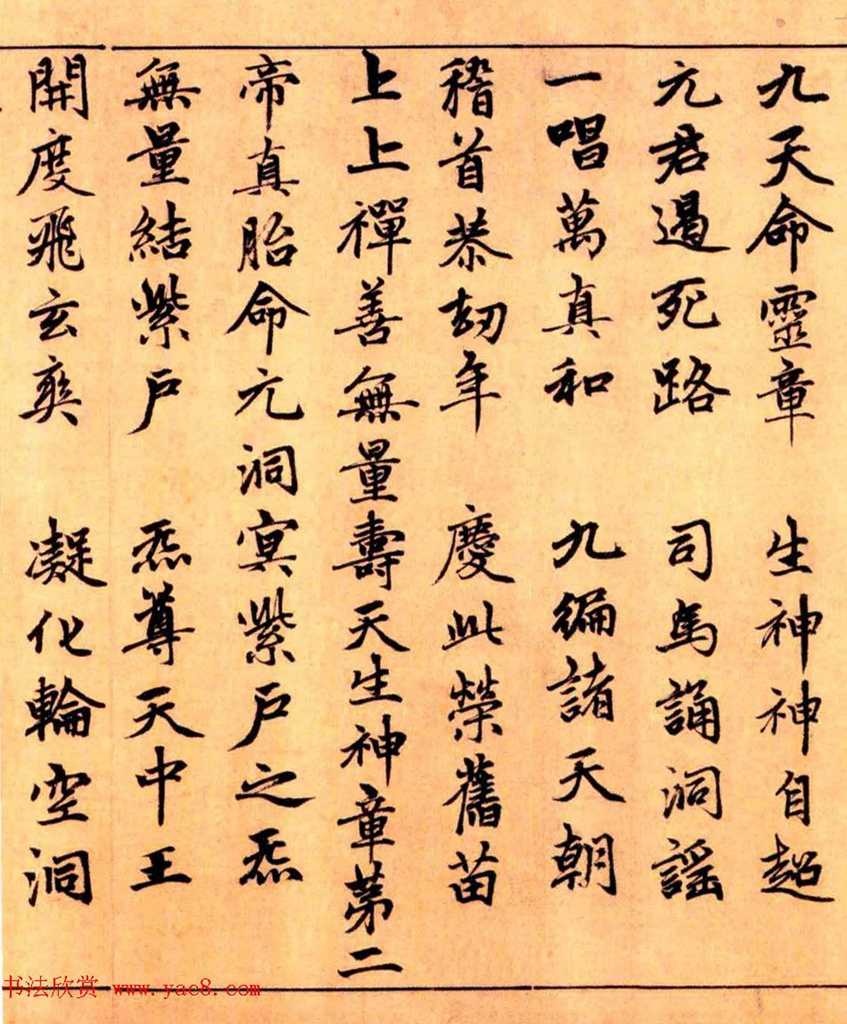 九天命靈章 生神神自超
元君遏死路 司馬誦洞謠
一唱萬真和 九編諸天朝
稽首恭劫年 慶此榮舊苗
上上禪善無量壽天生神章第二
帝真胎命元洞冥紫戶之炁
無量結紫戶 炁尊天中王
開度飛玄爽 凝化輪空洞
书法欣赏 www.yac8.com